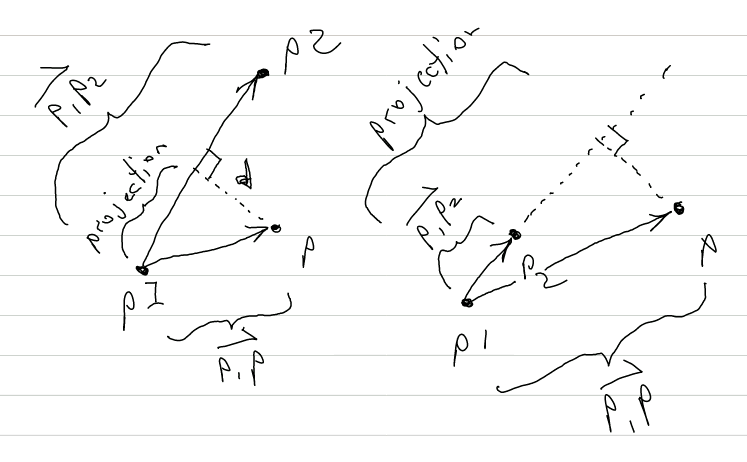 p2
p1p2
projection
d
p
p1
p1p
projection
p1p2
p2
p
p1
p1p